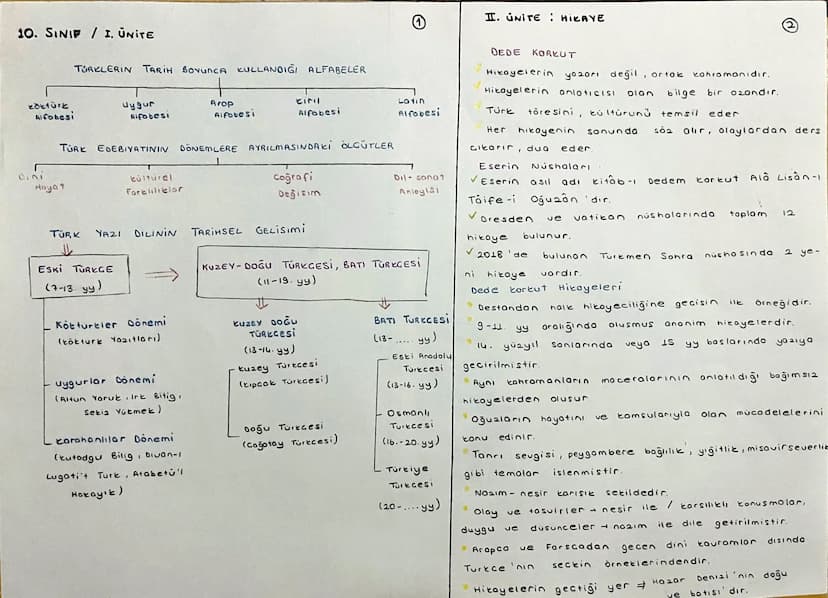 10. SINIF / I. ÜNİTE
1
TÜRKLERİN TARİH BOYUNCA KULLANDIĞI ALFABELER
Köktürk Alfabesi
Uygur Alfabesi
Arap Alfabesi
Kiril Alfabesi
Latin Alfabesi
TÜRK EDEBİYATININ DÖNEMLERE AYRILMASINDAKİ ÖLÇÜTLER
Dini Hayat
Kültürel Farklılıklar
Coğrafi Değişim
Dil-sanat Anlayışı
TÜRK YAZI DİLİNİN TARİHSEL GELİSİMİ
ESKİ TÜRKCE
(7-13. yy)
KUZEY-DOĞU TÜRKÇESİ, BATI TÜRKCESİ
(11-19. yy)
Köktürkler Dönemi
(Köktürk Yazıtları)
Uygurlar Dönemi
(Altun Yaruk, Irk Bitig,
Sekiz Yükmek)
Karahanlılar Dönemi
(Kutadgu Bilig, Divan-ı
Lugati't Türk, Atabetü'l
Hakayık)
KUZEY DOĞU
TÜRKÇESİ
(13-14. yy)
Kuzey Türkcesi
(Kıpcak Türkcesi)
Doğu Türkcesi
(Cağatay Türkcesi)
BATI TÜRKCESİ
(13-.... yy)
Eski Anadolu
Türkcesi
(13-16. yy)
Osmanlı
Türkcesi
(16.-20. yy)
Türkiye
Türkcesi
(20-.... yy)
II. ÜNİTE : HİKAYE
2
DEDE KORKUT
Hikayelerin yazarı değil, ortak kahramanıdır.
Hikayelerin anlatıcısı olan bilge bir ozandır.
Türk töresini, kültürünü temsil eder
Her hikayenin sonunda söz alır, olaylardan ders
cıkarır, dua eder
Eserin Nüshaları
✓ Eserin asıl adı Kitâb-ı Dedem Korkut Alâ Lisân-ı
Tâife-i Oğuzân'dır.
✓ Dresden ve Vatikan nüshalarında toplam 12
hikaye bulunur.
✓ 2018'de bulunan Türkmen Sahra nüshasında 2 ye-
ni hikaye vardır.
Dede Korkut Hikayeleri
Destandan halk hikayeciliğine gecisin ilk örneğidir.
9-11. yy aralığında olusmus anonim hikayelerdir.
14. yüzyıl sonlarında veya 15 yy baslarında yazıya
gecirilmistir.
Aynı kahramanların maceralarının anlatıldığı bağımsız
hikayelerden olusur
Oğuzların hayatını ve komsularıyla olan mücadelelerini
konu edinir.
Tanrı sevgisi, peygambere bağlılık, yiğitlik, misavirseverlik
gibi temalar islenmistir.
Nazım-nesir karısık sekildedir.
Olay ve tasvirler → nesir ile / karsılıklı konusmalar,
duygu ve düsünceler → nazım ile dile getirilmistir.
Arapca ve Farscadan gecen dini kavramlar dısında
Türkce'nin seckin örneklerindendir.
Hikayelerin gectiği yer ⇒ Hazar Denizi'nin doğu
ve batısı'dır.